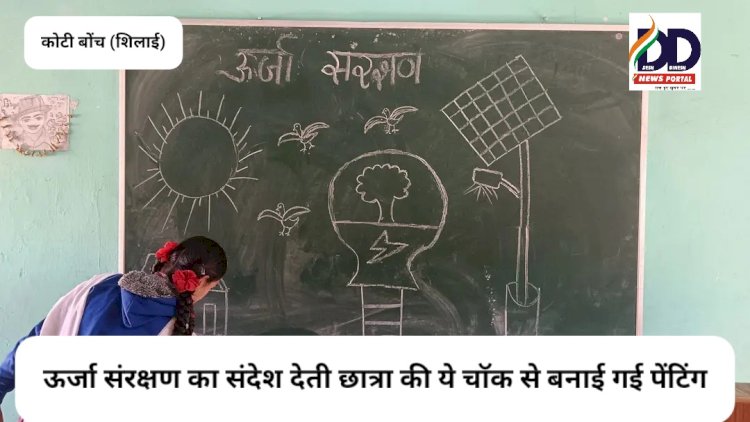 कोटी बोंच (शिलाई)
ऊर्जा संरक्षण
DD
DESH DINESH
NEWS PORTAL
ऊर्जा संरक्षण का संदेश देती छात्रा की ये चॉक से बनाई गई पेंटिंग